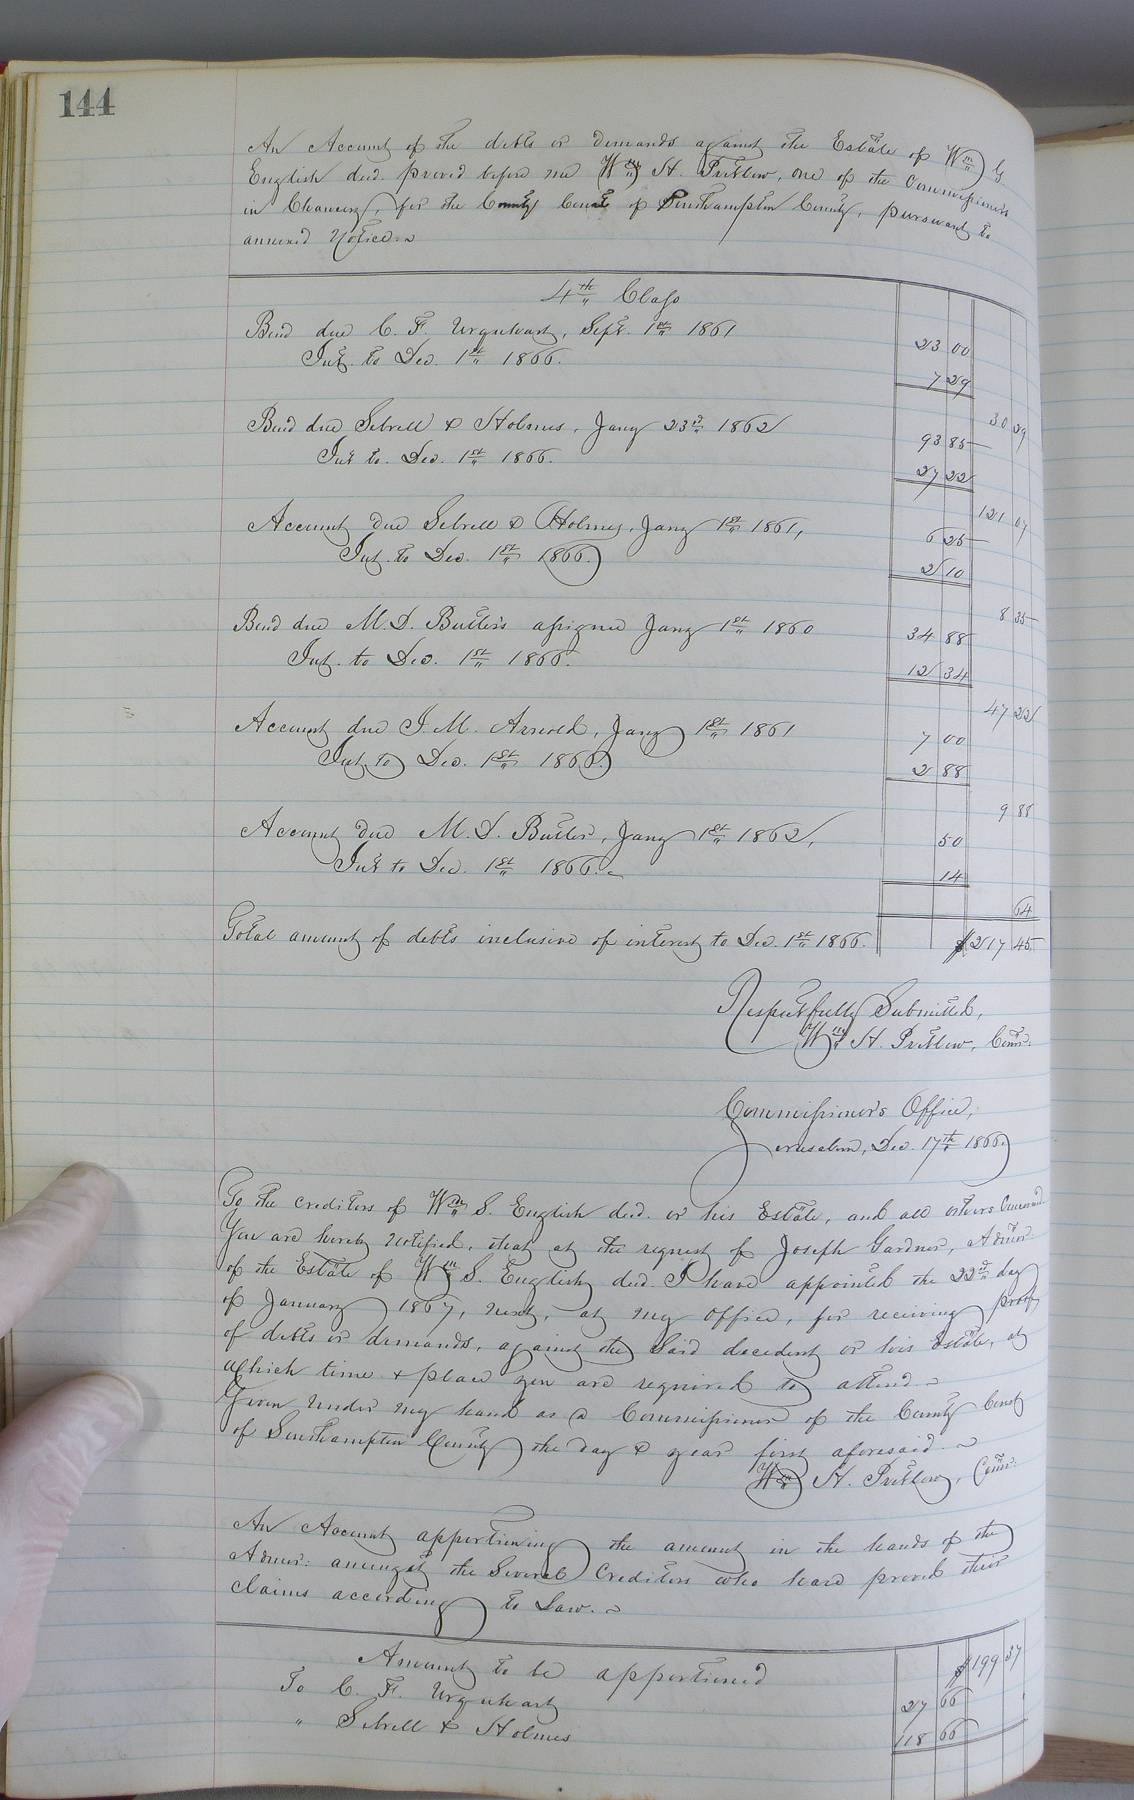 144
An Account of the debts or demands against the Estate of Wm S
English decd. proved before me Wm H. Pretlow, one of the Commissioners
in Chancery, for the County Court of Southampton County, pursuant to
annexed Notice.
4th Class
Bond due C. F. Urquhart, Sept. 1st 1861 23 00
Int. to Dec. 1st 1866. 7 29
30 29
Bond due Sebrell & Holmes, Jany 23d 1862 93 85
Int to. Dec. 1st 1866. 27 22
121 07
Account due Sebrell & Holmes, Jany 1st 1861, 6 25
Int. to Dec. 1st 1866. 2 10
8 35
Bond due M. D. Butler's assignee Jany 1st 1860 34 88
Int. to Dec. 1st 1866. 12 34
47 22
Account due J. M. Arnold, Jany 1st 1861 7 00
Int to Dec. 1st 1866. 2 88
9 88
Account due M. D. Butler, Jany 1st 1862, 50
Int to Dec. 1st 1866. 14
64
Total amount of debts inclusive of interest to Dec. 1st 1866. $217 45
Respectfully Submitted,
Wm H. Pretlow, Comr.
Commissioner's Office,
Jerusalem, Dec. 17th 1866
To the creditors of Wm S. English decd. or his Estate, and all others Concerned
You are hereby notified, that at the request of Joseph Gardner, Admor
of the Estate of Wm S. English decd. I have appointed the 22d day
of January 1867, next, at my Office, for receiving proof
of debts or demands, against the said decedent or his Estate, at
which time & place you are required to attend.
Given under my hand as a Commissioner of the County Court
of Southampton County the day & year first aforesaid.
Wm H. Pretlow, Comr.
An Account apportioning the amount in the hands of the
Admor: amongst the Several Creditors who have proved their
claims according to Law.
Amount to be apportioned $199 37
To C. F. Urquhart 27 66
" Sebrell & Holmes 118 66